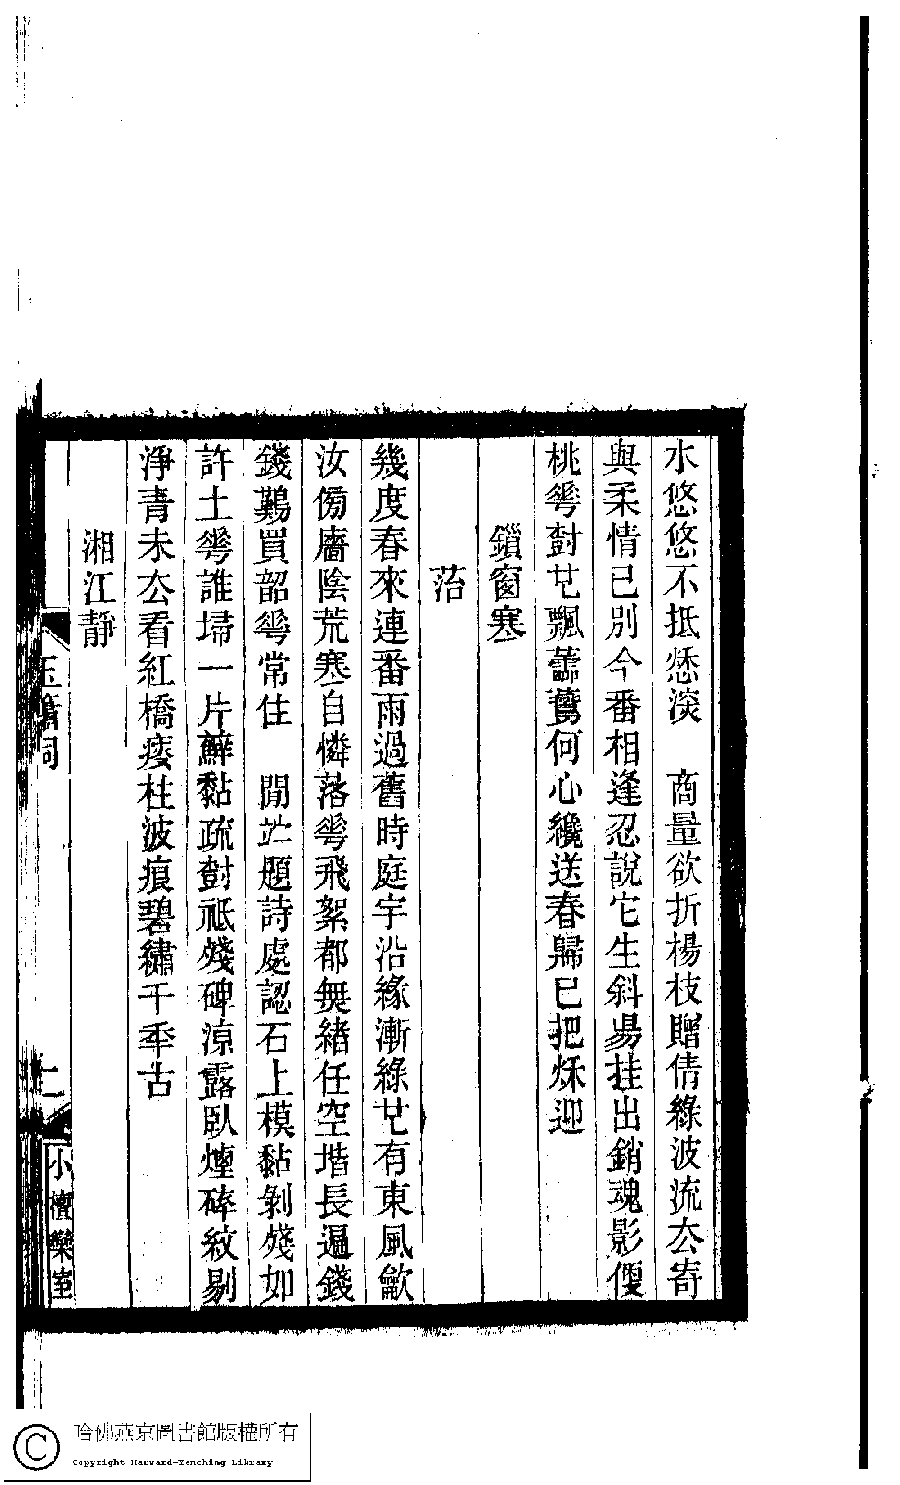 水悠悠不抵愁深　商量欲折楊枝贈倩綠波流厺寄
與柔情已別今番相逢忍說它生斜昜挂出銷魂影便
桃華對𠀍飄蕭鶯何心纔送春歸已把秌迎
鎖窗寒
苔
幾度春來連番雨過舊時庭宇沿緣漸綠𠀍有東風歈
汝傍廧陰荒寒自憐落華飛絮都無緒任空堦長遍錢
錢鷬買韶華常住　閒㘴題詩處認石上模黏剝殘如
許土華誰埽一片蘚黏疏對祗殘碑涼露臥煙碎紋剔
淨青未厺看紅橋痿柱波痕碧繡千秊古
湘江靜
玉簫詞
小檀欒室
哈佛燕京圖書館版權所有
Copyright Harvard-Yenching Library